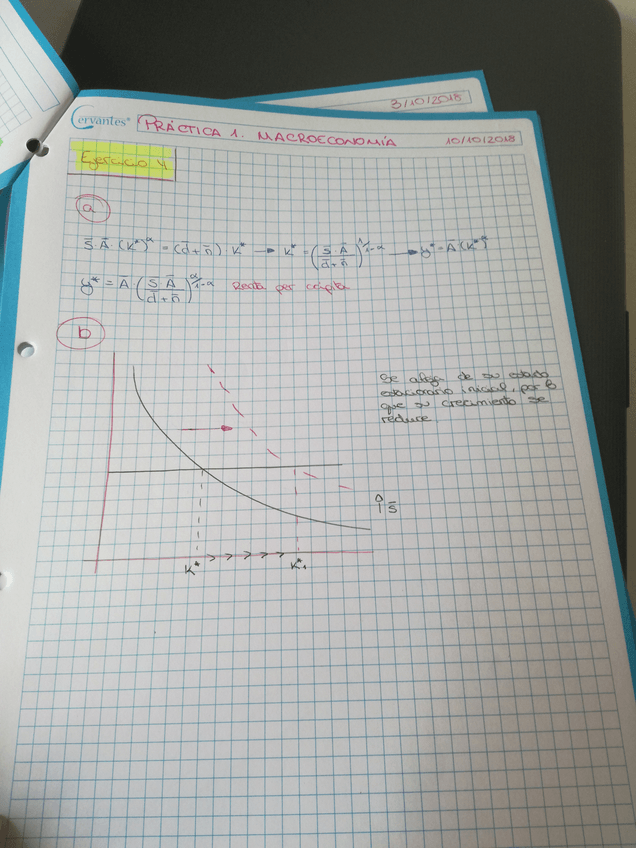 3/10/2018
Cervantes® PRÁCTICA 1. MACROECONOMÍA 10/10/2018
Ejercicio 4
a
s̄·Ā·(K*)^α = (d̄+n̄) K* → K* = (s̄·Ā/d̄+n̄)^1/1-α → y* = Ā(K*)^α
y* = Ā (s̄ Ā/d̄+n̄)^α/1-α Renta per cápita
b
Se aleja de su estado
estacionario inicial, por lo
que su crecimiento se
reduce.
↑ s̄
K* K*₁